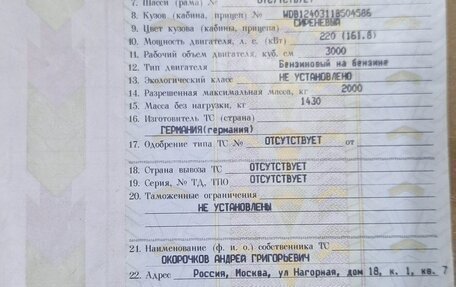 7. Шасси (рама) № ОТСУТСТВУЕТ
8. Кузов (кабина, прицеп) № WDB12403118504586
9. Цвет кузова (кабины, прицепа) СИРЕНЕВЫЙ
10. Мощность двигателя, л. с. (кВт) 220 (161.8)
11. Рабочий объем двигателя, куб. см 3000
12. Тип двигателя Бензиновый на бензине
13. Экологический класс НЕ УСТАНОВЛЕНО
14. Разрешенная максимальная масса, кг 2000
15. Масса без нагрузки, кг 1430
16. Изготовитель ТС (страна)
ГЕРМАНИЯ(германия)
17. Одобрение типа ТС № ОТСУТСТВУЕТ от
18. Страна вывоза ТС ОТСУТСТВУЕТ
19. Серия, № ТД, ТПО ОТСУТСТВУЕТ
20. Таможенные ограничения
НЕ УСТАНОВЛЕНЫ
21. Наименование (ф. и. о.) собственника ТС
ОКОРОЧКОВ АНДРЕЙ ГРИГОРЬЕВИЧ
22. Адрес Россия, Москва, ул Нагорная, дом 18, к. 1, кв. 7